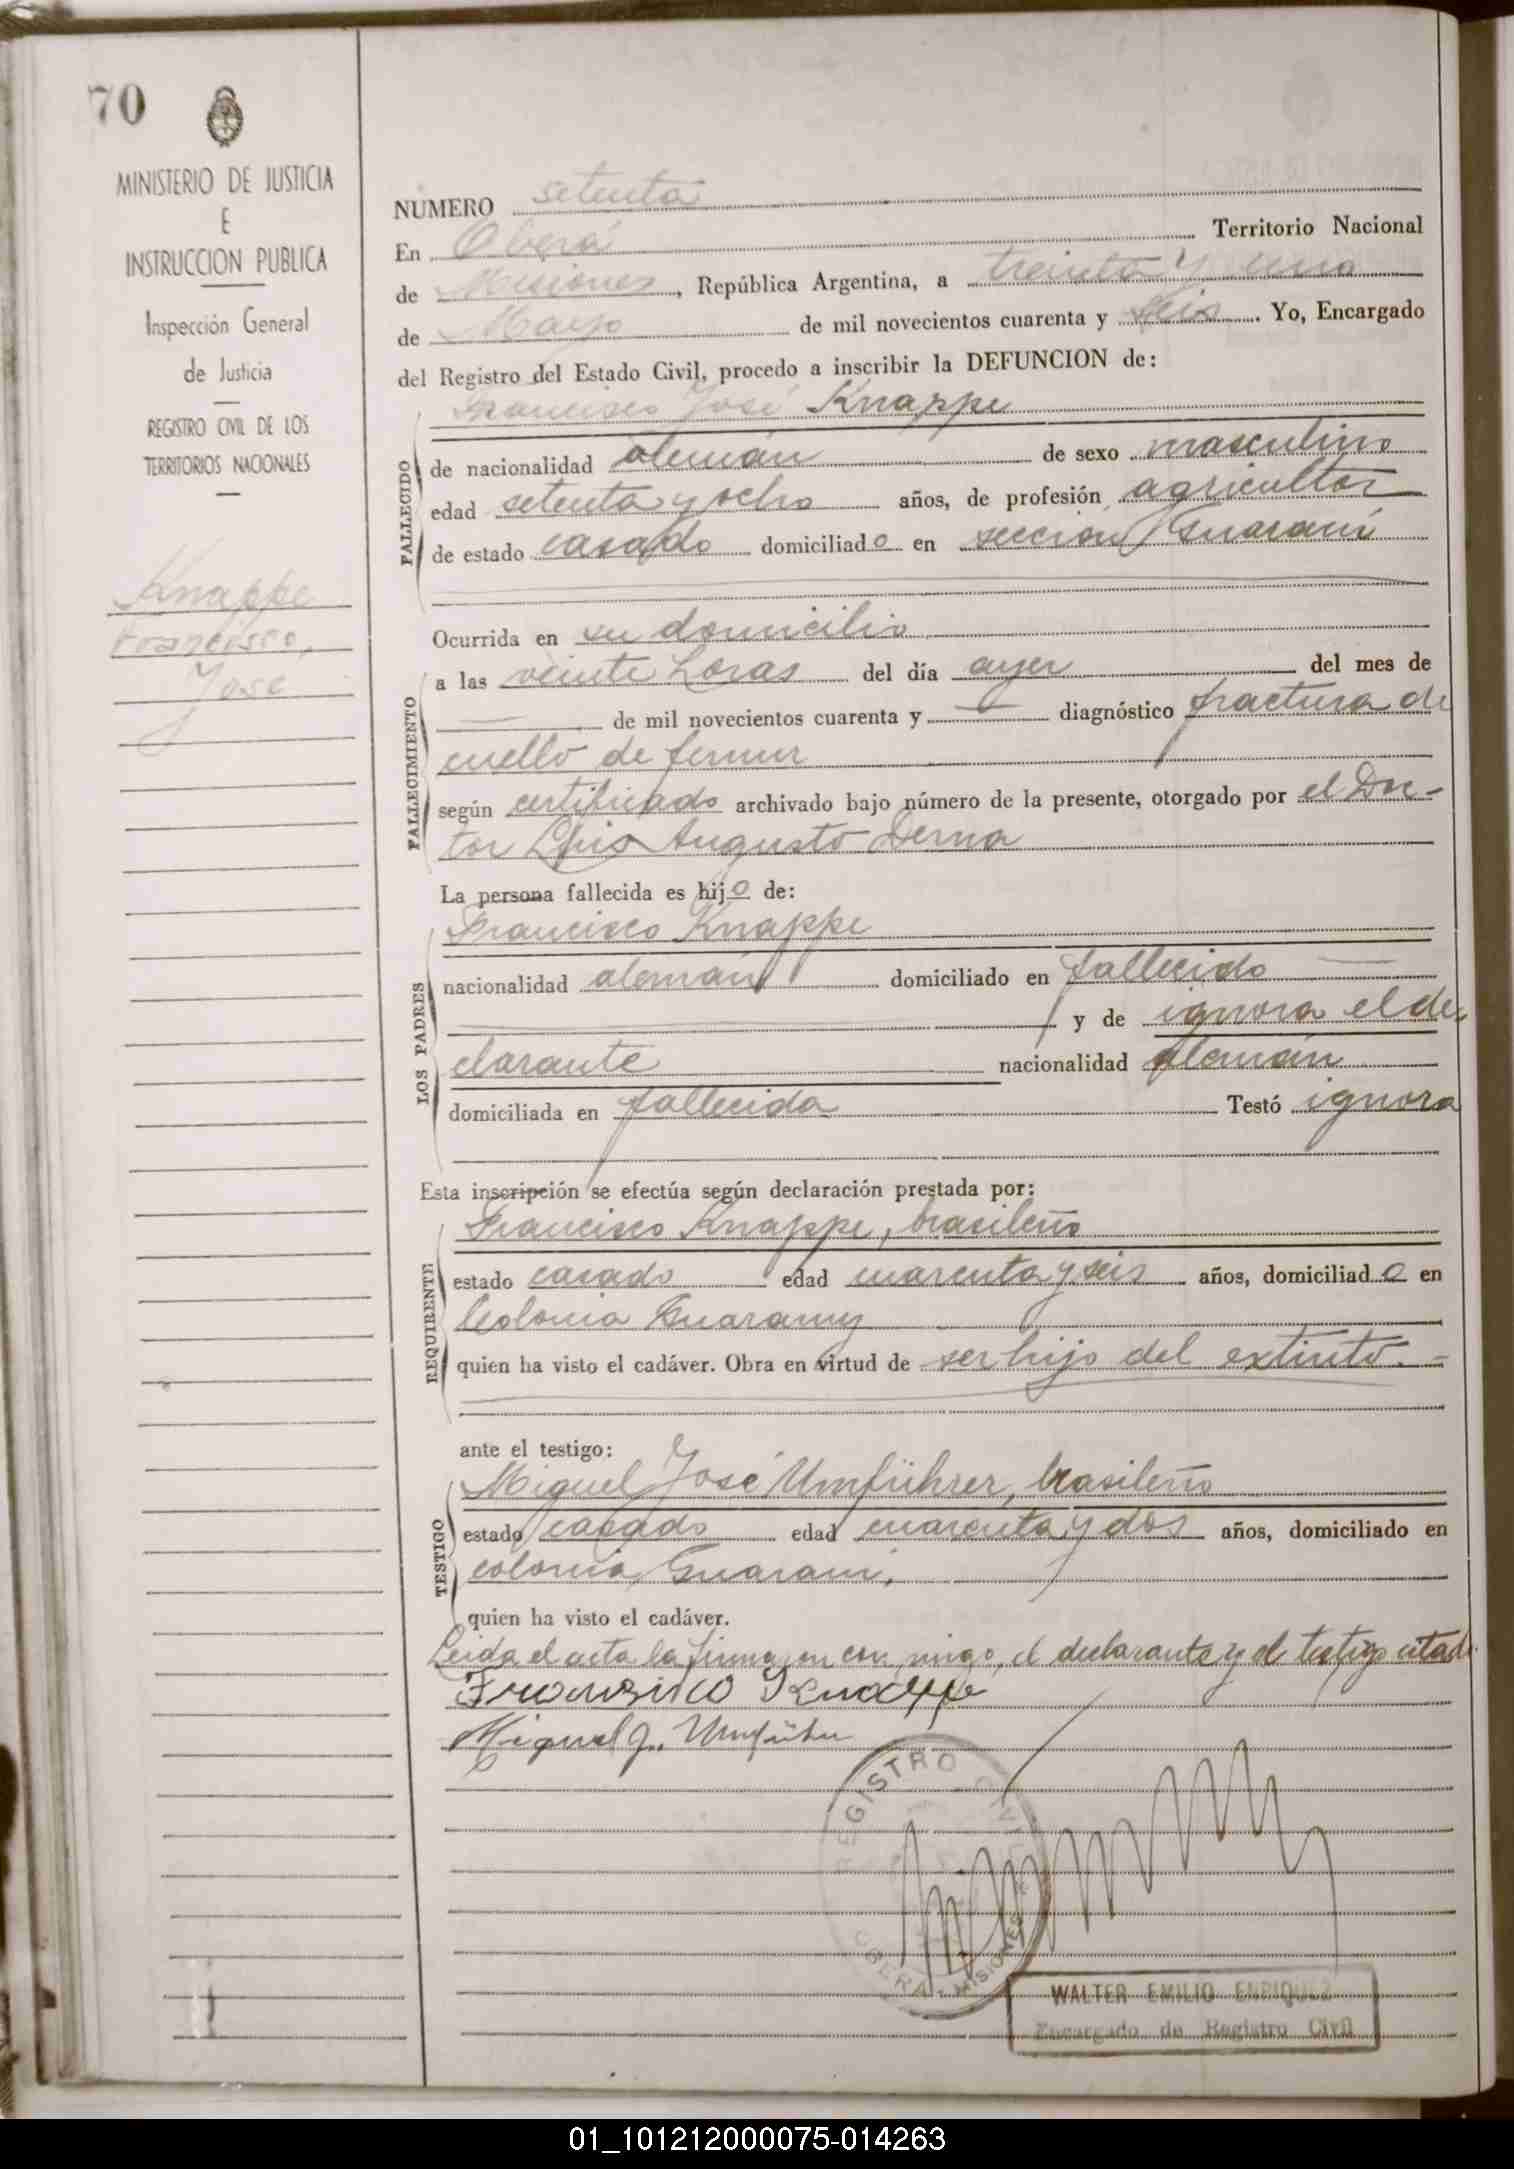 70
MINISTERIO DE JUSTICIA
E
INSTRUCCION PUBLICA
Inspección General
de Justicia
REGISTRO CIVIL DE LOS
TERRITORIOS NACIONALES
Knappe
Francisco,
José
NUMERO setenta
En Oberá Territorio Nacional
de Misiones, República Argentina, a treinta y uno
de Mayo de mil novecientos cuarenta y seis. Yo, Encargado
del Registro del Estado Civil, procedo a inscribir la DEFUNCION de:
Francisco José Knappe
FALLECIDO
de nacionalidad alemán de sexo masculino
edad setenta y ocho años, de profesión agricultor
de estado casado domiciliado en sección Guaraní
Ocurrida en su domicilio
FALLECIMIENTO
a las veinte horas del día ayer del mes de
de mil novecientos cuarenta y diagnóstico fractura de
cuello de femur
según certificado archivado bajo número de la presente, otorgado por el Doc-
tor Luis Augusto Derna
La persona fallecida es hijo de:
Francisco Knappe
LOS PADRES
nacionalidad alemán domiciliado en fallecido
y de ignora el de-
clarante nacionalidad alemán
domiciliada en fallecida Testó ignora
Esta inscripción se efectúa según declaración prestada por:
Francisco Knappe, brasileño
REQUIRENTE
estado casado edad cuarenta y seis años, domiciliado en
Colonia Guarany
quien ha visto el cadáver. Obra en virtud de ser hijo del extinto.-
ante el testigo:
Miguel José Umführer, brasileño
TESTIGO
estado casado edad cuarenta y dos años, domiciliado en
colonia Guarani.
quien ha visto el cadáver.
Leida el acta la firmaron con migo, el declarante y el testigo citado.
Francisco Knappe
Miguel J. Umführer
REGISTRO CIVIL
OBERA - MISIONES
WALTER EMILIO ENRIQUEZ
Encargado de Registro Civil
01_101212000075-014263